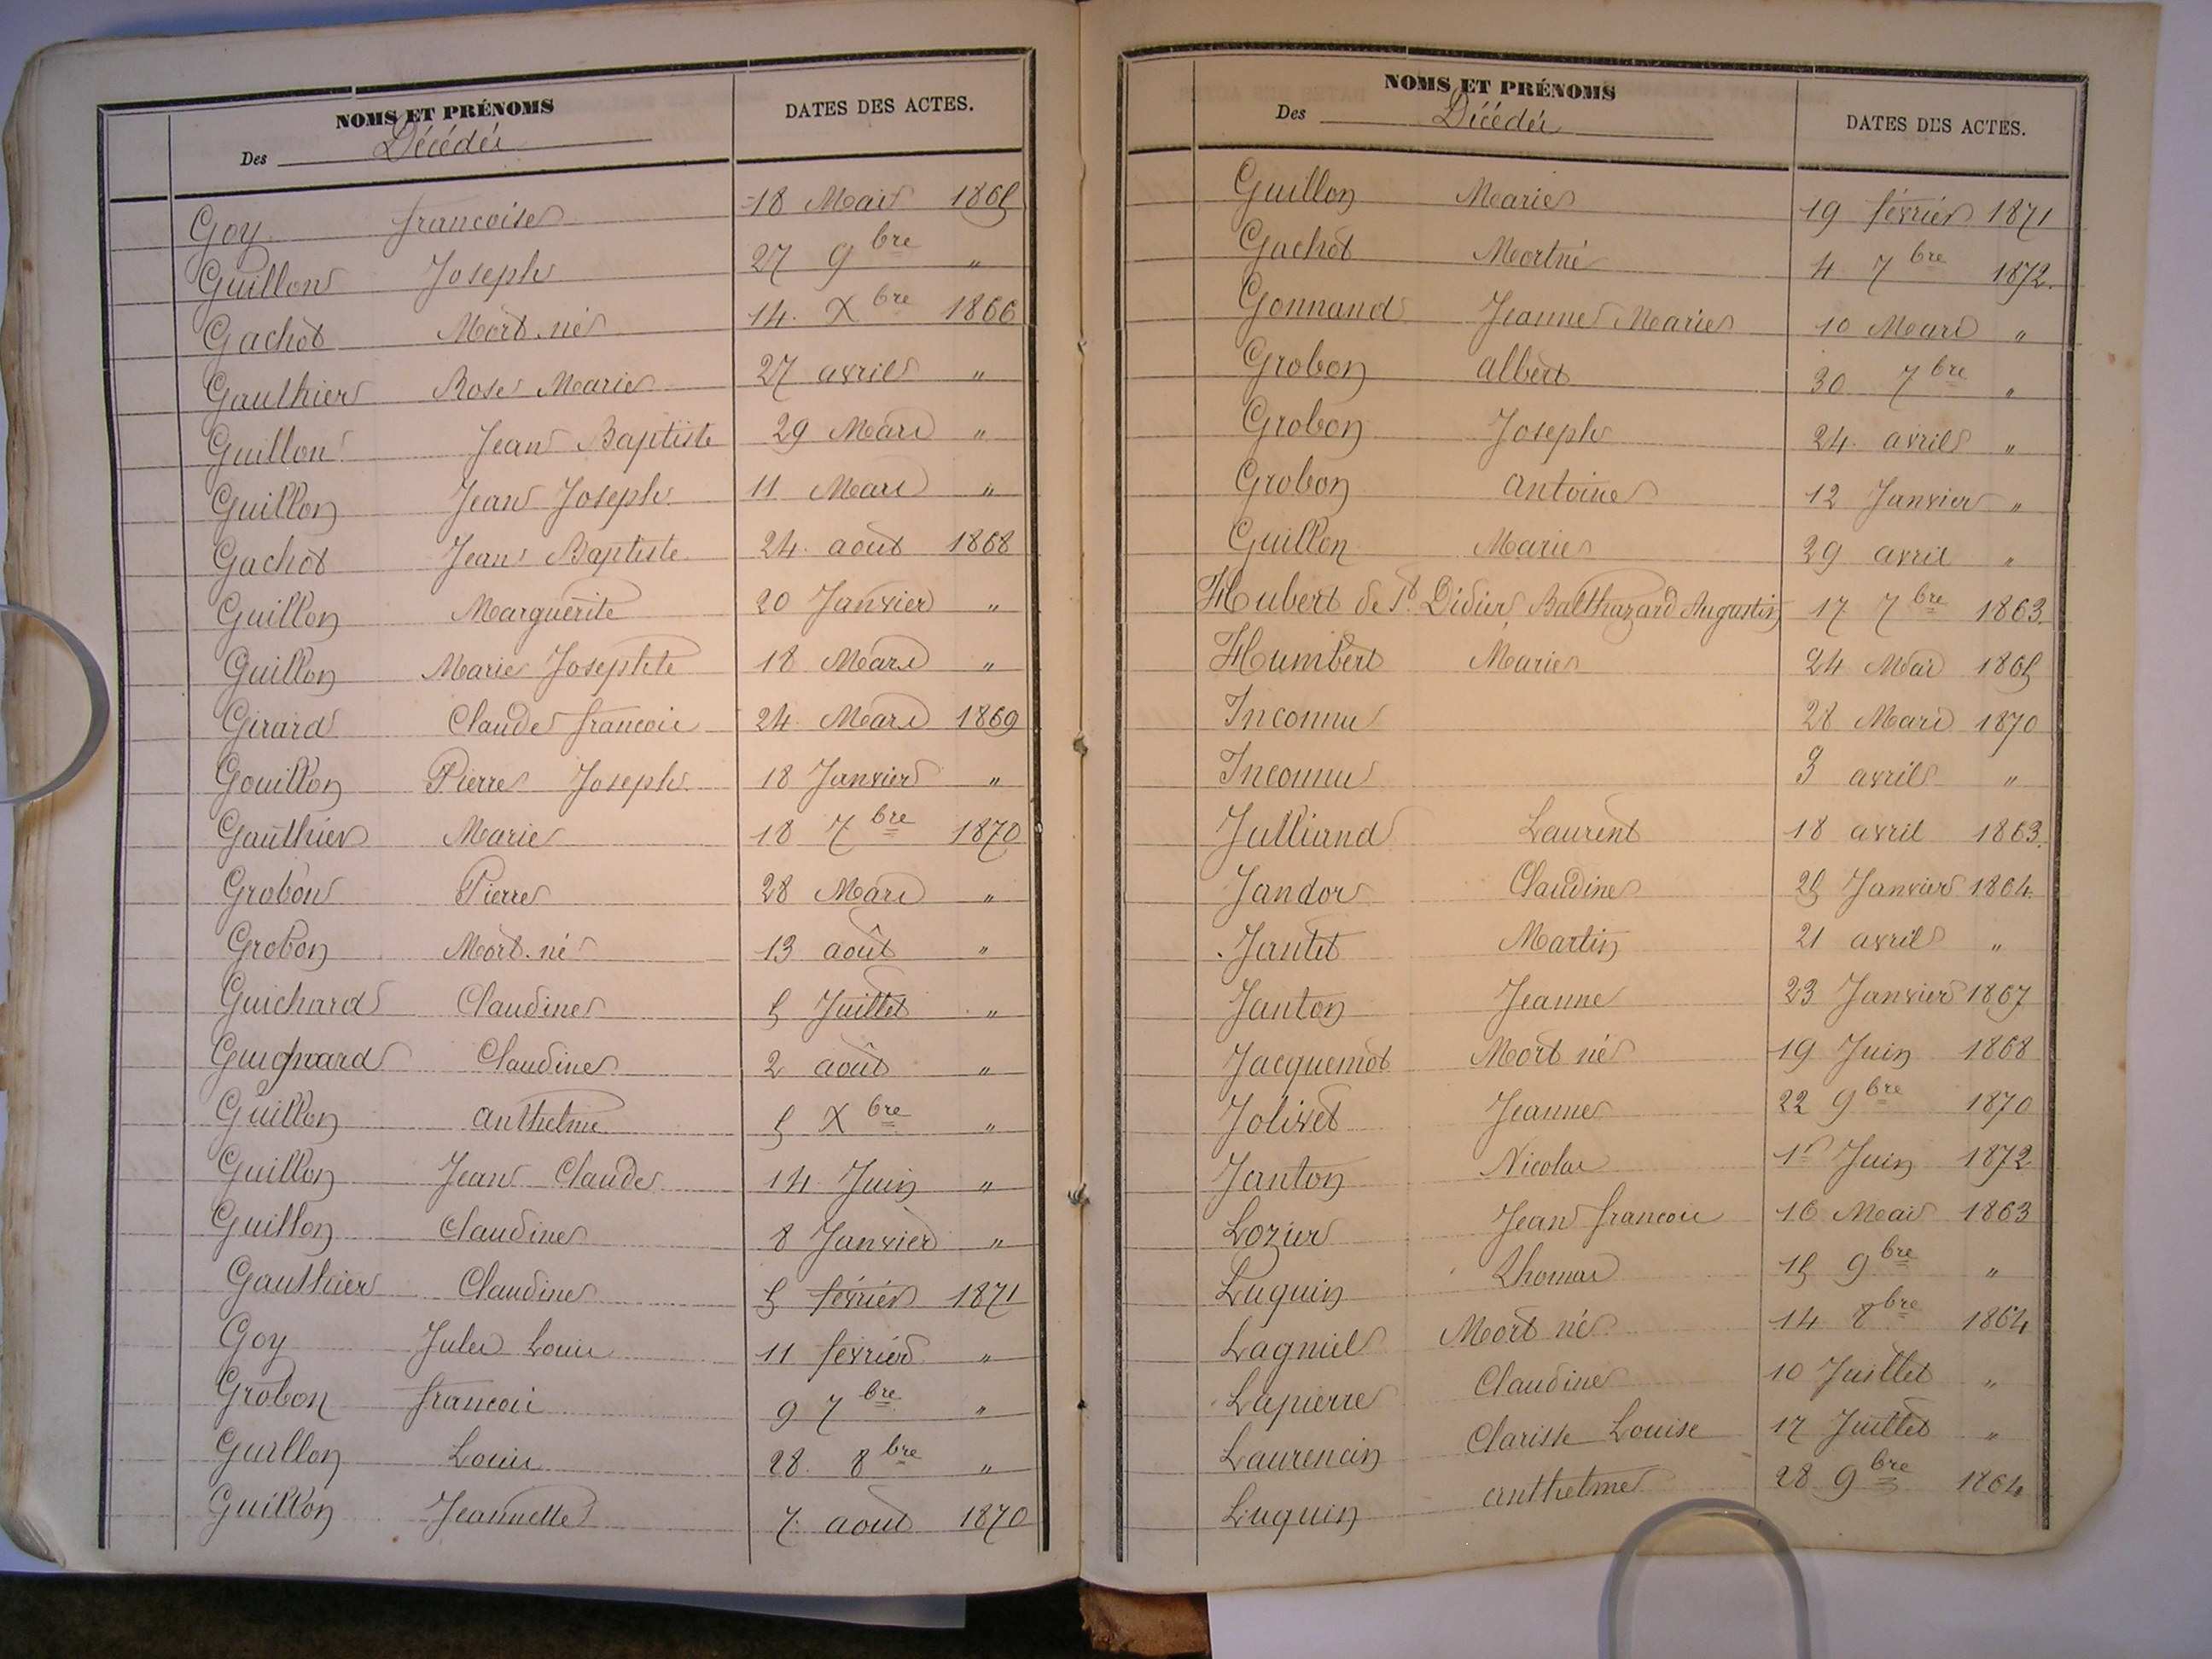 NOMS ET PRÉNOMS
Des Décédés
DATES DES ACTES.
Goy françoise 18 Mai 1865
Guillon Joseph 27 9bre "
Gachot Mort né 14 Xbre 1866
Gauthier Rose Marie 27 avril "
Guillon Jean Baptiste 29 Mars "
Guillon Jean Joseph 11 Mars "
Gachot Jean Baptiste 24 août 1868
Guillon Marguerite 20 Janvier "
Guillon Marie Josephte 18 Mars "
Girard Claude françois 24 Mars 1869
Gouillon Pierre Joseph 18 Janvier "
Gauthier Marie 18 7bre 1870
Grobon Pierre 28 Mars "
Grobon Mort né 13 août "
Guichard Claudine 5 Juillet "
Claudine 2 août "
Guillon anthelme 5 Xbre "
Guillon Jean Claude 14 Juin "
Guillon Claudine 8 Janvier "
Gauthier Claudine 5 février 1871
Goy Jules Louis 11 février "
Grobon françois 9 7bre "
Guillon Louis 28 8bre "
Guillon Jeannette 7 août 1870
NOMS ET PRÉNOMS
Des Décédés
DATES DES ACTES.
Guillon Marie 19 février 1871
Gachot Mort né 4 7bre 1872
Gonnand Jeanne Marie 10 Mars "
Grobon albert 30 7bre "
Grobon Joseph 24 avril "
Grobon antoine 12 Janvier "
Guillon Marie 29 avril "
Hubert de St Didier, Balthazard Augustin 17 7bre 1863
Humbert Marie 24 Mai 1865
Inconnu 28 Mars 1870
Inconnu 3 avril "
Julliand Laurent 18 avril 1863
Jandor Claudine 25 Janvier 1864
Jantet Martin 21 avril "
Janton Jeanne 23 Janvier 1867
Jacquemot Mort né 19 Juin 1868
Jolivet Jeanne 22 9bre 1870
Janton Nicolas 1r Juin 1872
Lozier Jean françois 16 Mai 1863
Luquin Thomas 15 9bre "
Lagniel Mort né 14 8bre 1864
Lapierre Claudine 10 Juillet "
Laurencin Clarisse Louise 17 Juillet "
Luquin anthelme 28 9bre 1864